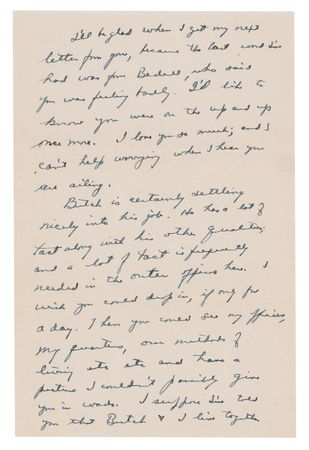 I'll be glad when I get my next
letter from you, because the last word I've
had was from Bedell, who said
you was feeling badly. I'd like to
know you were on the up and up
once more. I love you so much; and I
can't help worrying when I hear you
are ailing.
Butch is certainly settling
nicely into his job. He has a lot of
tact along with his other qualities
and a lot of tact is frequently
needed in the outer offices here. I
wish you could drop in, if only for
a day. Then you could see my offices,
my quarters, our methods of
living etc etc and have a
picture I couldn't possibly give
you in words. I suppose I've told
you that Butch & I live together